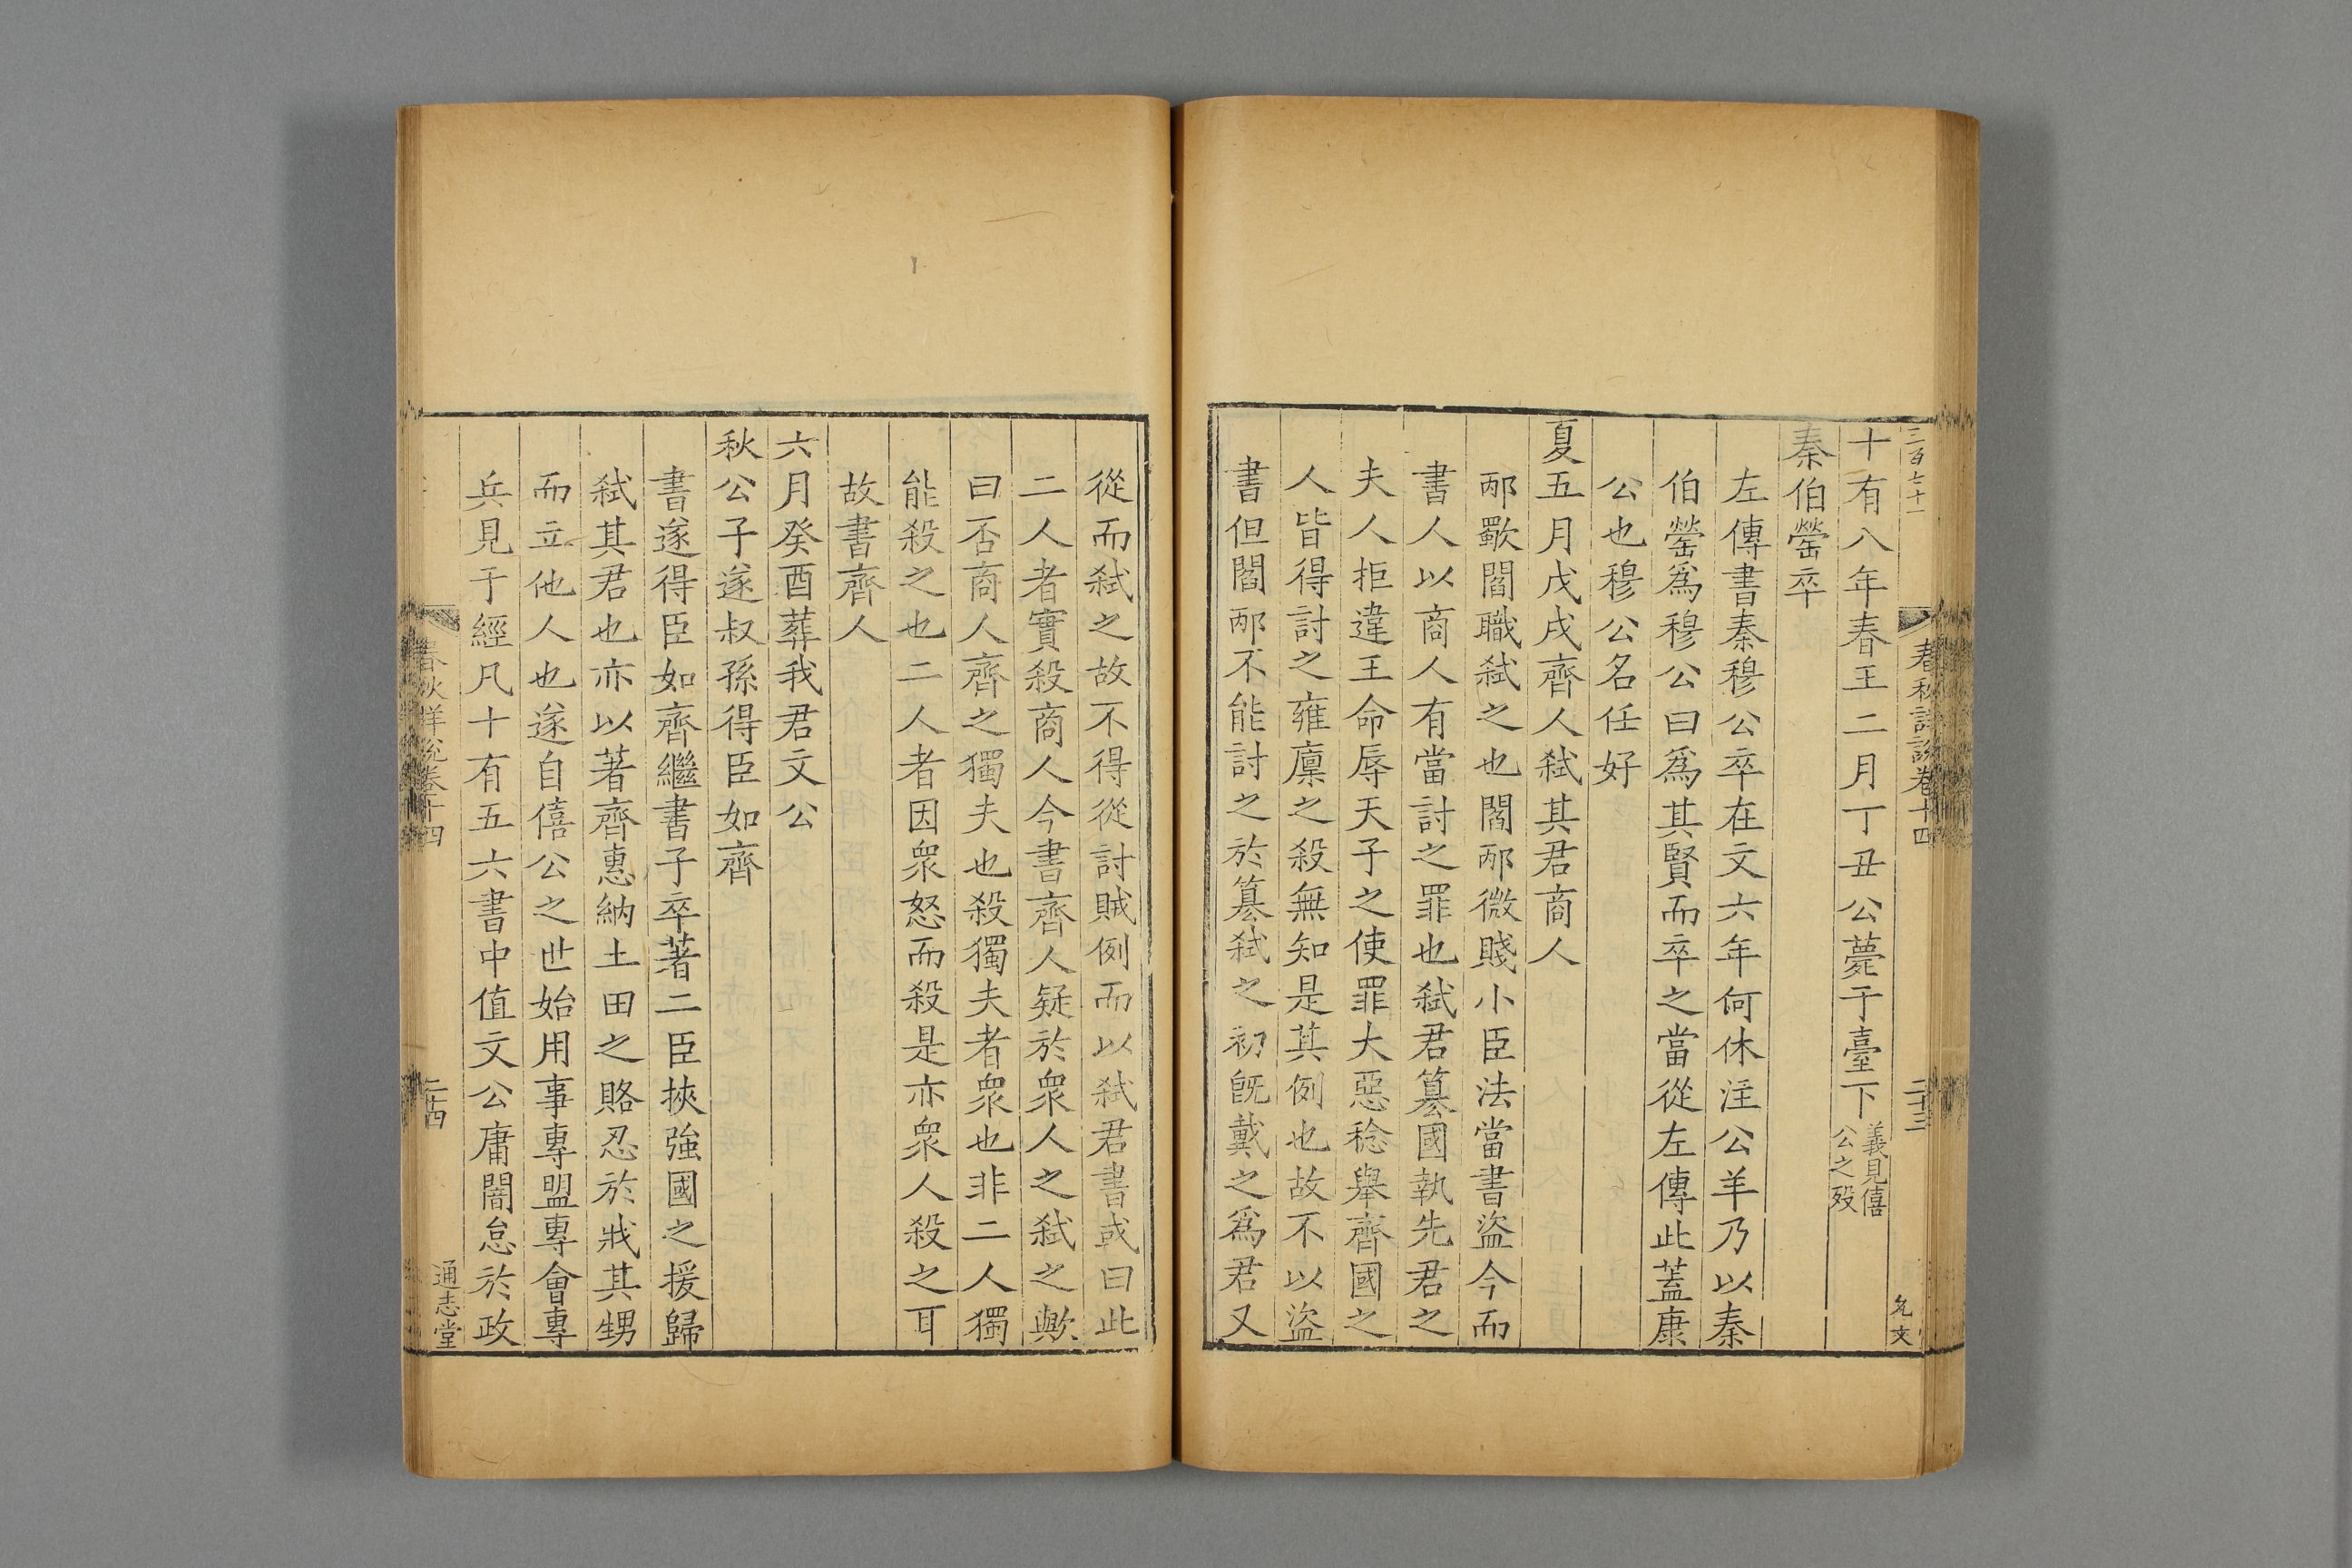 三百七十一
春秋詳說卷十四
二十三
允文
十有八年春王二月丁丑公薨于臺下義見僖公之歿
秦伯罃卒
左傳書秦穆公卒在文六年何休注公羊乃以秦
伯罃爲穆公曰爲其賢而卒之當從左傳此蓋康
公也穆公名任好
夏五月戊戌齊人弑其君商人
邴歜閻職弑之也閻邴微賤小臣法當書盜今而
書人以商人有當討之罪也弑君簒國執先君之
夫人拒違王命辱天子之使罪大惡稔舉齊國之
人皆得討之雍廩之殺無知是其例也故不以盜
書但閻邴不能討之於簒弑之初旣戴之爲君又
從而弑之故不得從討賊例而以弑君書或曰此
二人者實殺商人今書齊人疑於衆人之弑之歟
曰否商人齊之獨夫也殺獨夫者衆也非二人獨
能殺之也二人者因衆怒而殺是亦衆人殺之耳
故書齊人
六月癸酉葬我君文公
秋公子遂叔孫得臣如齊
書遂得臣如齊繼書子卒著二臣挾強國之援歸
弑其君也亦以著齊惠納土田之賂忍於戕其甥
而立他人也遂自僖公之世始用事專盟專會專
兵見于經凡十有五六書中值文公庸闇怠於政
春秋詳說卷十四
二十四
通志堂